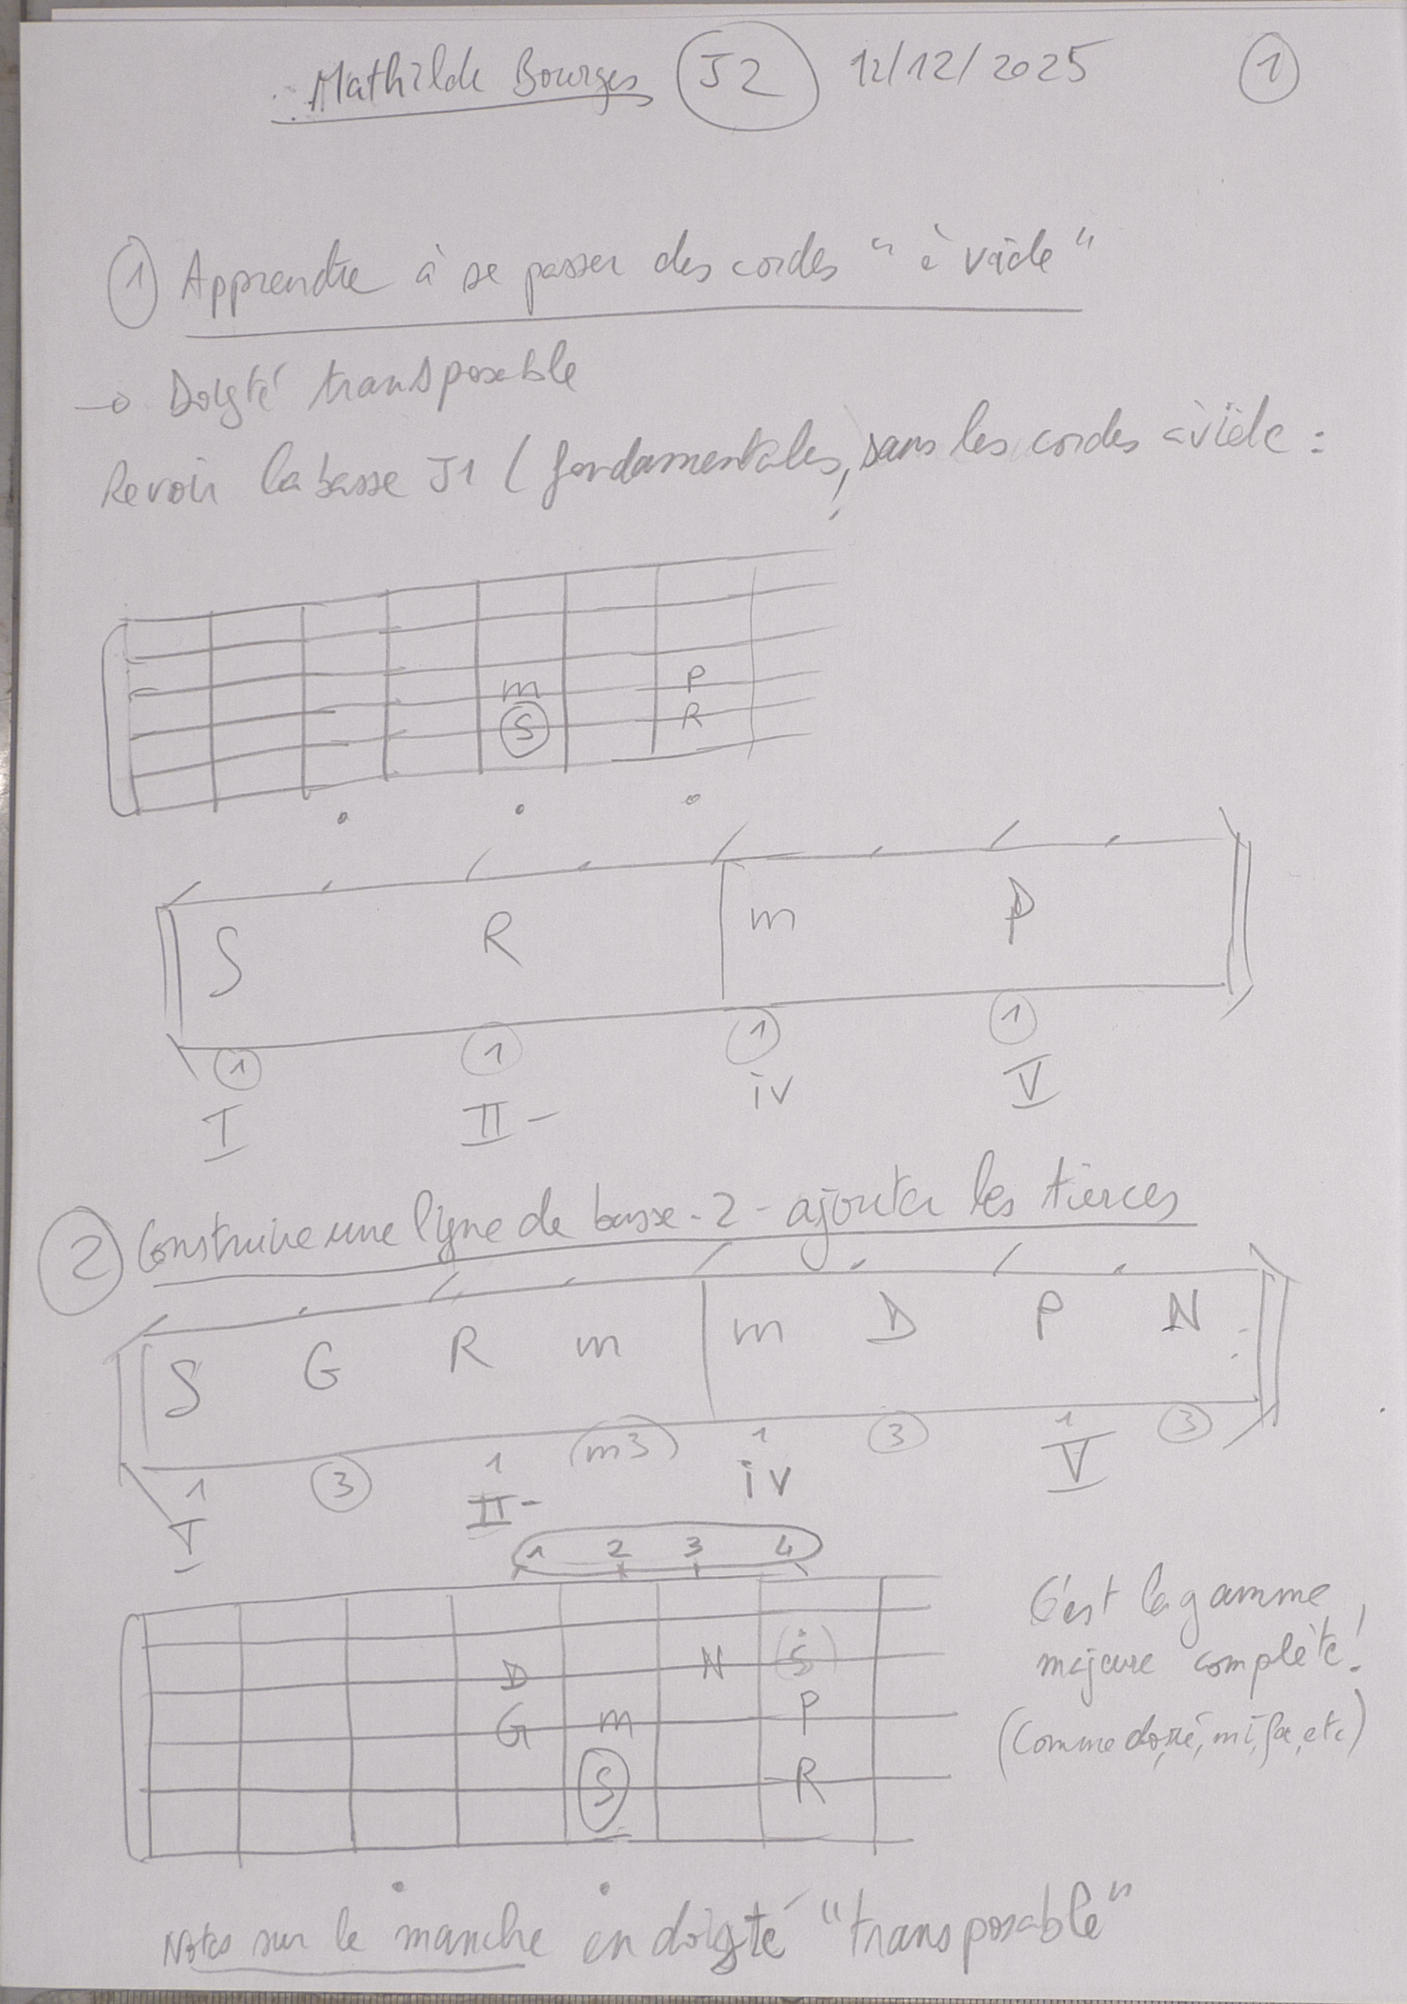 Mathilde Bourges J2 12/12/2025 1
1 Apprendre à se passer des cordes "à vide"
→ Doigté transposable
Revoir la basse J1 (fondamentales, sans les cordes à vide :
m P
S R
S R m P
1 1 1 1
I II- iv V
2 Construire une ligne de basse - 2 - ajouter les tierces
S G R m m D P N :
1 3 1 (m3) 1 3 1 3
I II- iv V
1 2 3 4
D N (Ṡ)
G m P
S R
C'est la gamme
majeure complète !
(Comme do, ré, mi, fa, etc)
Notes sur le manche en doigté "transposable"